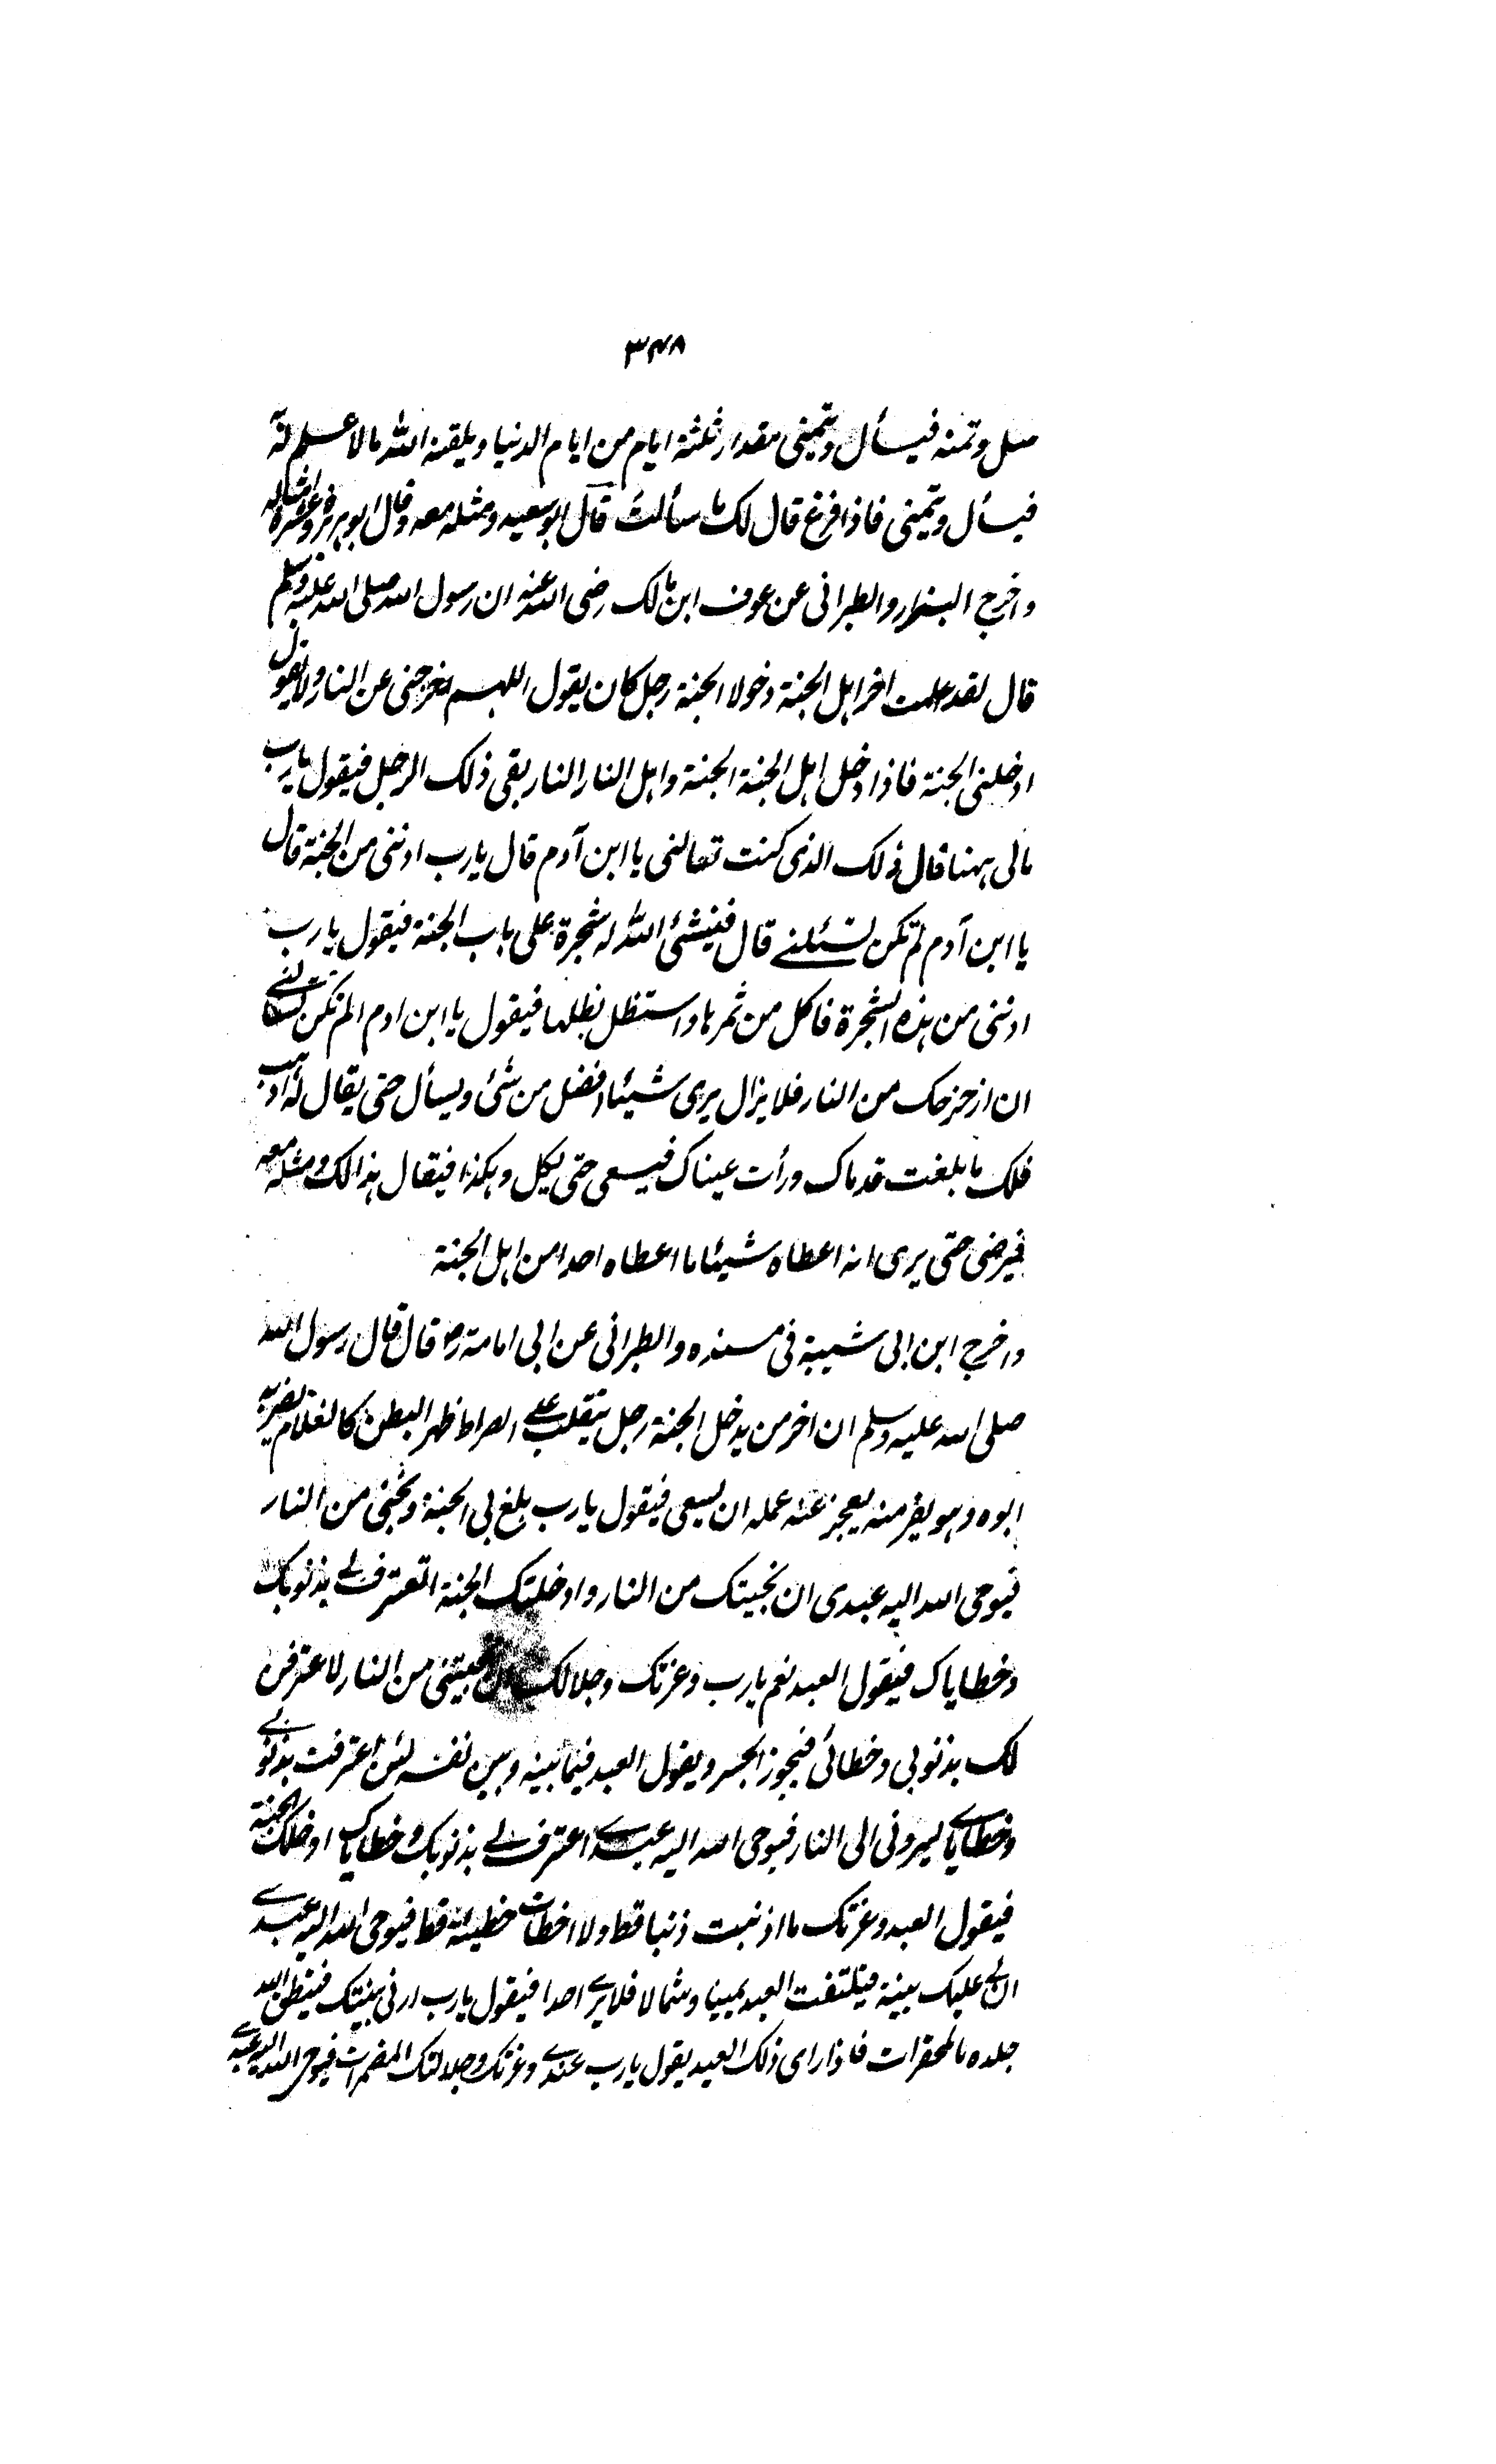 ۳۴۸
سل وتمنه فيسأل ويتمنى مقدار ثلثة ايام من ايام الدنيا ويلقنه الله مالا علم له
فيسأل ويتمنى فاذا فرغ قال لك ما سألت قال ابو سعيد ومثله معه وقال ابو هريرة وعشرة امثاله
واخرج البزار والطبرانى عن عوف ابن مالك رضى الله عنه ان رسول الله صلى الله عليه وسلم
قال لقد علمت اخر اهل الجنة دخولا الجنة رجل كان يقول اللهم اخرجنى عن النار ولا يقول
ادخلنى الجنة فاذا دخل اهل الجنة الجنة واهل النار النار بقى ذلك الرجل فيقول يا رب
مالى ههنا قال ذلك الذى كنت تعالنى يا ابن آدم قال يا رب ادننى من الجنة قال
يا ابن آدم لم تكن تسئلنے قال فينشئ الله له شجرة على باب الجنة فيقول يا رب
ادننى من هذه الشجرة فاكل من ثمرها واستظل بظلها فيقول يا ابن ادم الم تكن تسألنے
ان ازحزحك من النار فلا يزال يرى شيئا افضل من شئ ويسأل حتى يقال له اذهب
فلك ما بلغت قدماك ورأت عيناك فيسعى حتى يكل وهكذا فيقال هذا لك ومثله معه
فيرضى حتى يرى انه اعطاه شيئا ما اعطاه احدا من اهل الجنة
واخرج ابن ابى شيبة فى مسنده والطبرانى عن ابى امامة رض قال قال رسول الله
صلى الله عليه وسلم ان اخر من يدخل الجنة رجل يتقلب علے الصراط ظهر البطن كالغلام يضربه
ابوه وهو يفر منه يعجز عنه عمله ان يسعى فيقول يا رب بلغ بى الجنة ونجنى من النار
فيوحى الله اليه عبدى ان نجيتك من النار وادخلتك الجنة اتعترف لے بذنوبك
وخطاياك فيقول العبد نعم يا رب وعزتك وجلالك ان نجيتنى من النار لاعترفن
لك بذنوبى وخطائى فيجوز الجسر ويقول العبد فيما بينه وبين نفسه لئن اعترفت بذنوبے
وخطاياے ليردنى الى النار فيوحى الله اليه عبدے اعترف لے بذنوبك وخطاياك ادخلك الجنة
فيقول العبد وعزتك ما اذنبت ذنبا قط ولا اخطات خطيئة قط فيوحى الله اليه عبدے
ان لے عليك بينة فيلتفت العبد يمينا وشمالا فلا يرے احدا فيقول يا رب ارنى بينتك فينطق الله
جلده بالمحقرات فاذا راى ذلك العبد يقول يا رب عندے وعزتك وجلالتك المضمرات فيوحى الله اليه عبدے